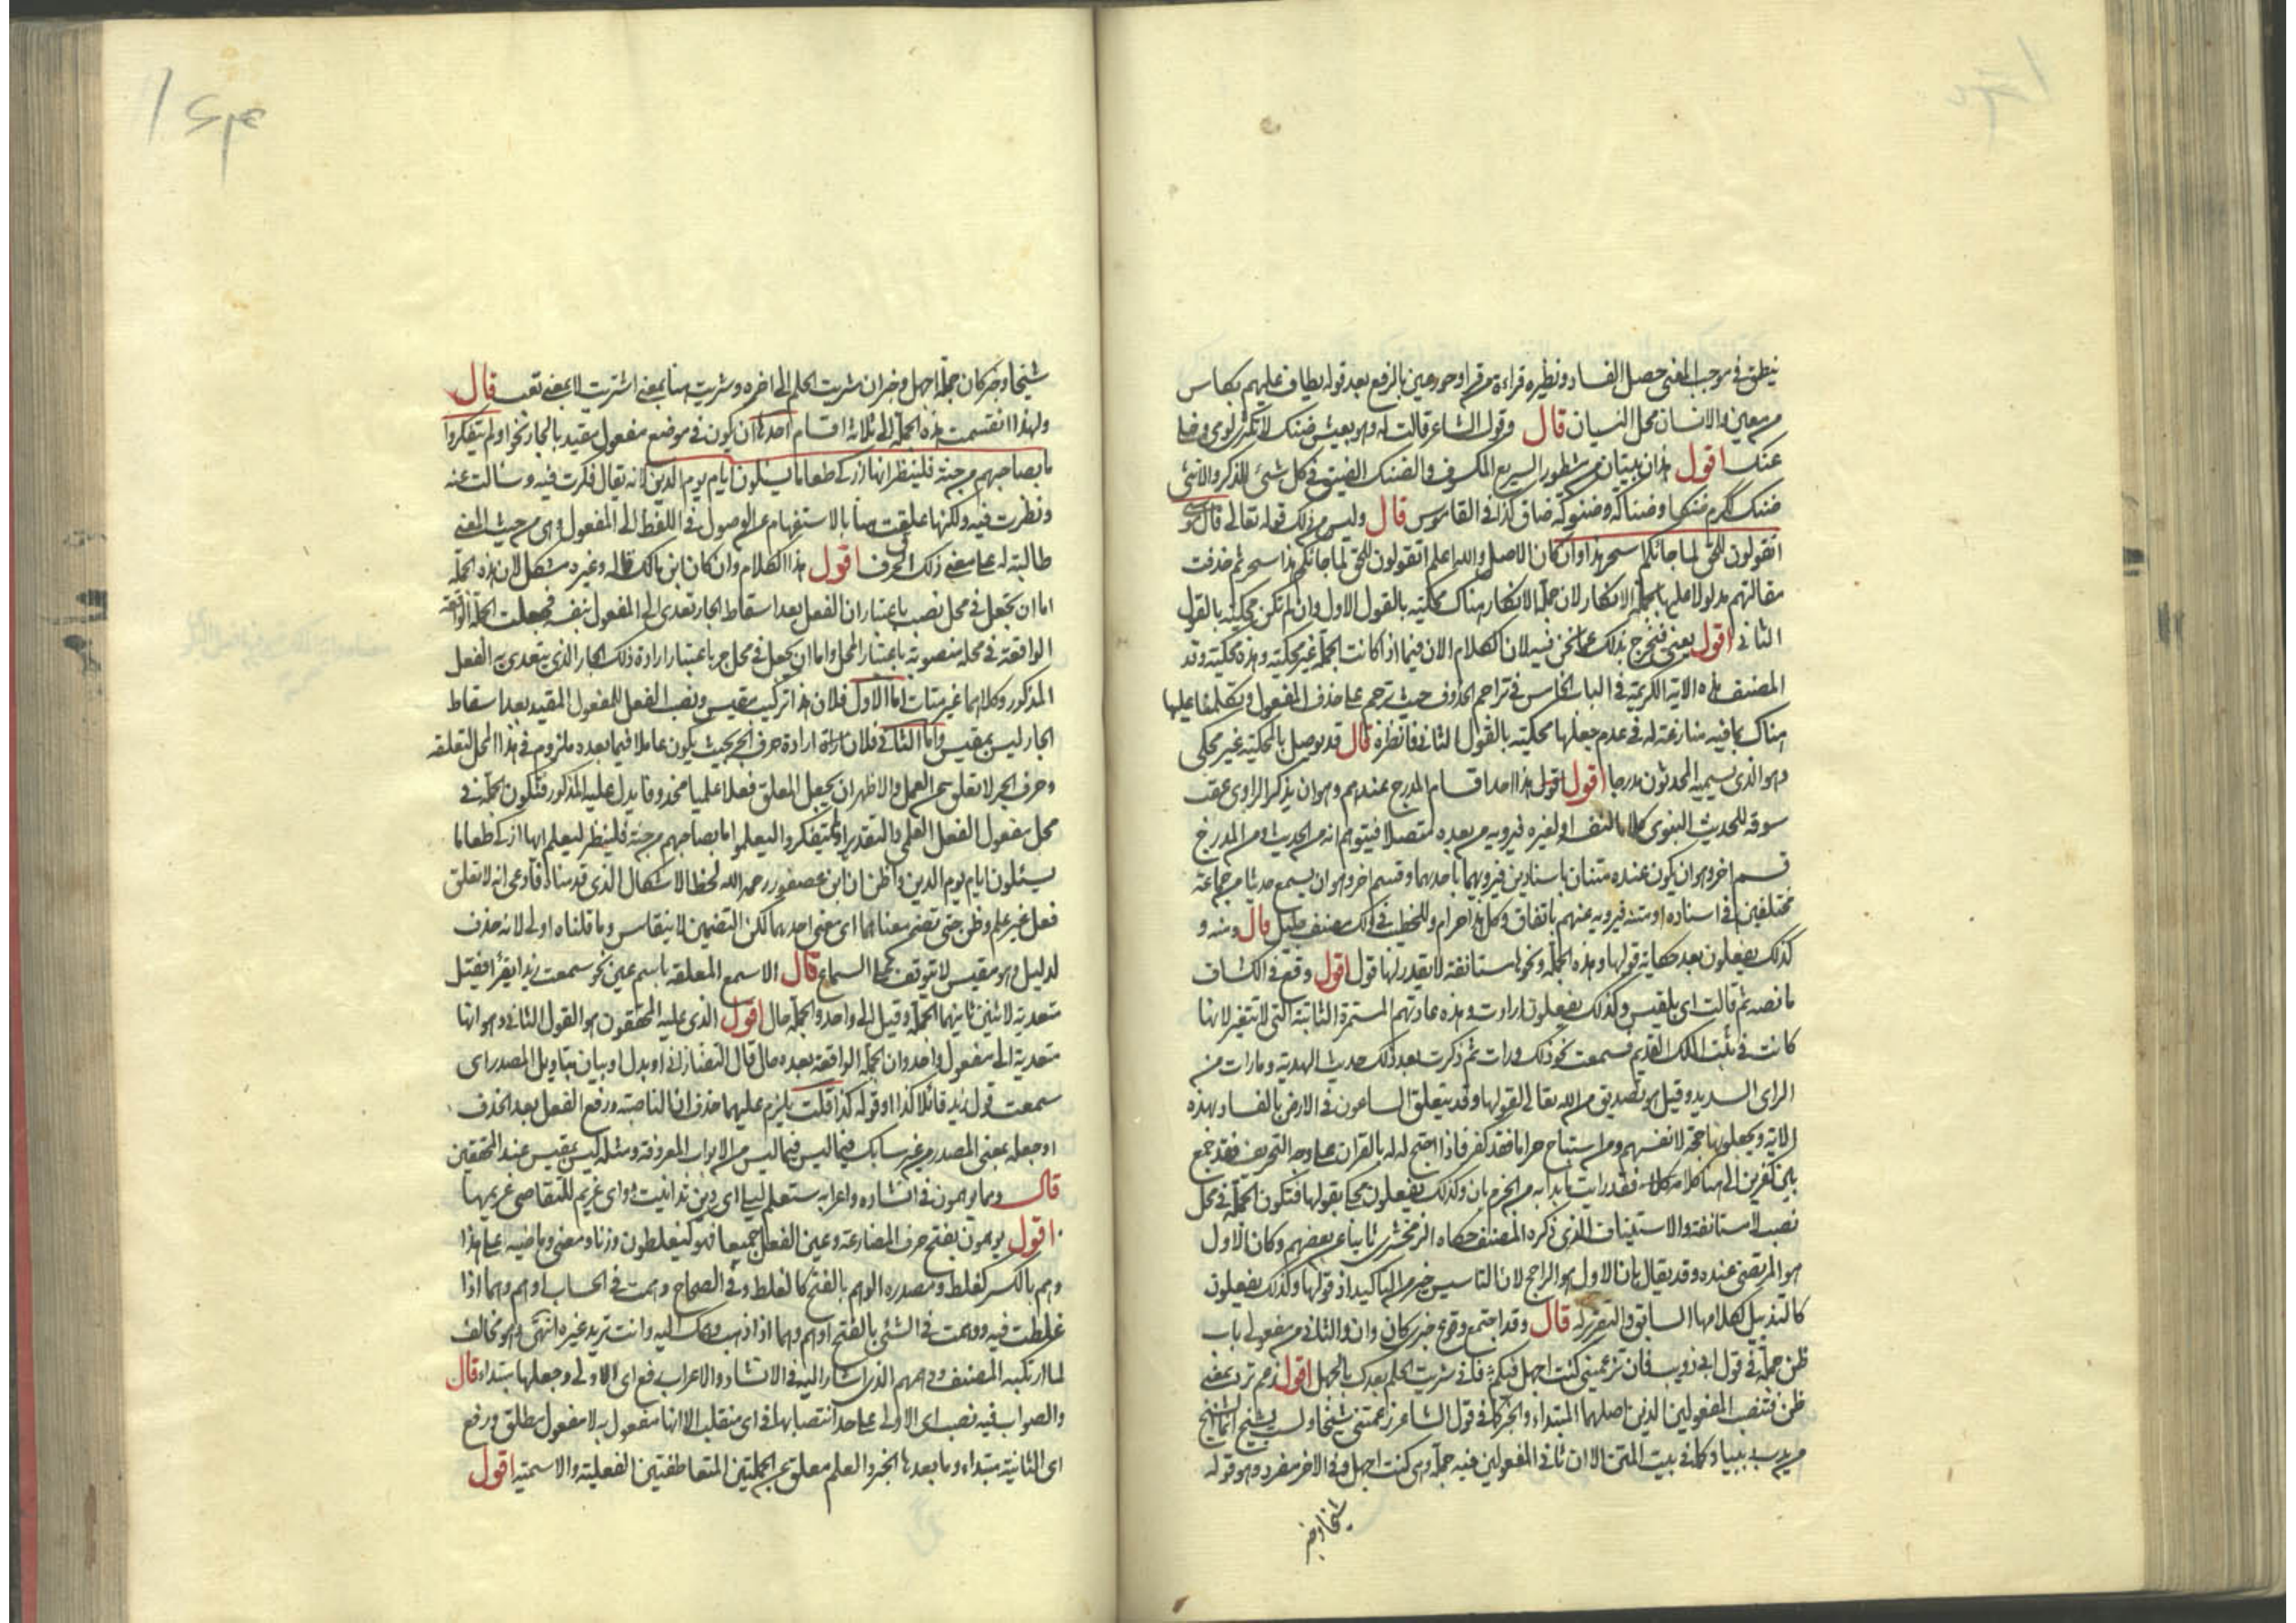 ينطق في موجب المغنى حصل الفساد ونظيره قراءة من قرا وحور عين بالرفع بعد قوله يطاف عليهم بكاس
من معين والانسان محل النسيان قال وقول الشاعر قالت له وهو بعيش ضنك لا تكثرى لومى وخلى
عنك اقول هذان بيتان من مشطور السريع المكسوف والضنك الضيق في كل شئ للذكر والانثى
ضنك ككرم ضنكا وضناكة وضنوكة ضاق كذا في القاموس قال وليس من ذلك قوله تعالى قال موسى
اتقولون للحق لما جائكم اسحر هذا وان كان الاصل والله اعلم اتقولون للحق لما جائكم هذا سحر ثم حذفت
مقالتهم مدلولا عليها بجملة الانكار لان جملة الانكار هناك محكية بالقول الاول وان لم تكن محكية بالقول
الثاني اقول يعنى فتخرج بذلك عما نحن فيه لان الكلام الان فيما اذا كانت الجملة غير محكية وهذه محكية وقد
المصنف هذه الاية الكريمة في الباب الخامس في تراجم الحذوف حيث ترجم على حذف المفعول وتكلمنا عليها
هناك بما فيه منازعة له في عدم جعلها محكية بالقول الثاني فانظره قال قد يوصل بالمحكية غير محكى
وهو الذى يسميه المحدثون مدرجا اقول اقول هذا احد اقسام المدرج عندهم وهو ان يذكر الراوى عقب
سوقه للحديث النبوى كلاما لنفسه او لغيره فيرويه من بعده متصلا فيتوهم انه من الحديث ومن المدرج
قسم اخر وهو ان يكون عنده متنان باسنادين فيرويهما باحدهما وقسم اخر وهو ان يسمع حديثا من جماعة
مختلفين في اسناده او متنه فيرويه عنهم باتفاق وكل هذا حرام وللخطيب في ذلك مصنف جليل قال ومنه و
كذلك يفعلون بعد حكاية قولها وهذه الجملة ونحوها مستانفة لا يقدر لها قول اقول وقع في الكشاف
ما نصه ثم قالت اى بلقيس وكذلك يفعلون ارادت وهذه عادتهم المستمرة الثابتة التى لا تتغير لانها
كانت في بيت الملك القديم فسمعت نحو ذلك ورات ثم ذكرت بعد ذلك حديث الهدية وما رات من
الراى السديد وقيل هو تصديق من الله تعالى لقولها وقد يتعلق الساعون في الارض بالفساد بهذه
الاية ويجعلونها حجة لانفسهم ومن استباح حراما فقد كفر فاذا احتج له بالقران على وجه التحريف فقد جمع
بين كفرين الى هنا كلامه فقد رايت ما بدا به من الجزم بان وكذلك يفعلون محكى بقولها فتكون الجملة في محل
نصب لا مستانفة والاستيناف الذى ذكره المصنف حكاه الزمخشرى ثانيا عن بعضهم وكان الاول
هو المرتضى عنده وقد يقال بان الاول هو الراجح لان التاسيس خير من التاكيد اذ قولها وكذلك يفعلون
كالتذييل لكلامها السابق والتقرير له قال وقد اجتمع وقوع خبرى كان وان والثاني من مفعولى باب
ظن جملة في قول ابى ذويب فان تزعمينى كنت اجهل فيكم فانى شريت الحلم بعدك بالجهل اقول زعم ترد بمعنى
ظن فتنصب المفعولين الذين اصلهما المبتداء والخبر كما في قول الشاعر زعمتنى شيخا ولست بشيخ انما الشيخ
من يدب دبيبا وكما في بيت المتن الا ان ثاني المفعولين فيه جملة وهى كنت اجهل وفي الاخر مفرد وهو قوله
شيخا وخبر
شيخا وخبر كان جملة اجهل وخبر ان شريت الحلم الى اخره وشريت هنا بمعنى اشتريت لا بمعنى بعت قال
ولهذا انقسمت هذه الجملة الى ثلاثة اقسام احدها ان يكون في موضع مفعول مقيد بالجار نحو اولم يتفكروا
ما بصاحبهم من جنة فلينظر ايها ازكى طعاما يسئلون ايان يوم الدين لانه يقال فكرت فيه وسالت عنه
ونظرت فيه ولكنها علقت هنا بالاستفهام عن الوصول في اللفظ الى المفعول وهى من حيث المعنى
طالبة له على معنى ذلك الحرف اقول هذا الكلام وان كان ابن مالك قاله وغيره مشكل لان هذه الجملة
اما ان تجعل في محل نصب باعتبار ان الفعل بعد اسقاط الجار تعدى الى المفعول بنفسه فجعلت الجملة الواقعة
الواقعة في محله منصوبة باعتبار المحل واما ان يجعل في محل جر باعتبار ارادة ذلك الجار الذى يتعدى به الفعل
المذكور وكلاهما غير متات اما الاول فلان هذا تركيب مقيس ونصب الفعل للمفعول المقيد بعد اسقاط
الجار ليس بمقيس واما الثاني فلان ارادة حرف الجر بحيث يكون عاملا فيما بعده ملزوم في هذا المحل لتعلقه
وحرف الجر لا يعلق عن العمل والاظهر ان يجعل المعلق فعلا علميا محذوفا يدل عليه المذكور فتكون الجملة في
محل مفعول الفعل العلمى والتقدير اولم يتفكروا ليعلموا ما بصاحبهم من جنة فلينظر ليعلم ايها ازكى طعاما
يسئلون ايان يوم الدين واظن ان ابن عصفور رحمه الله لحظ الاشكال الذى قدمناه فادعى انه لا يعلق
فعل غير علم وظن حتى يضمن معناهما اى معنى احدهما لكن التضمين لا ينقاس وما قلناه اولى لانه حذف
لدليل وهو مقيس لا يتوقف على السماع قال الا سمع المعلقة باسم عين نحو سمعت زيدا يقرأ فقيل
متعدية لاثنين ثانيهما الجملة وقيل الى واحد والجملة حال اقول الذى عليه المحققون هو القول الثاني وهو انها
متعدية الى مفعول واحد وان الجملة الواقعة بعده حال قال التفتازاني او بدل او بيان بتاويل المصدر اى
سمعت قول زيد قائلا كذا او قوله كذا قلت يلزم عليهما حذف ان الناصبة ورفع الفعل بعد الحذف
او جعله بمعنى المصدر من غير سابك فيما ليس فيما ليس من الابواب المعروفة ومثله ليس بمقيس عند المحققين
قال ومما يوهمون في انشاده واعرابه ستعلم ليلى اى دين تداينت واى غريم للتقاضى غريمها
اقول يوهمون بفتح حرف المضارعة وعين الفعل جميعا فهو كيغلطون وزنا ومعنى وماضيه على هذا
وهم بالكسر كغلط ومصدره الوهم بالفتح كالغلط وفي الصحاح وهمت في الحساب اوهم وهما اذا
غلطت فيه ووهمت في الشئ بالفتح اوهم وهما اذا ذهب وهمك اليه وانت تريد غيره انتهى وهو مخالف
لما ارتكبه المصنف ووهمهم الذى اشار اليه في الانشاد والاعراب رفع اى الاولى وجعلها مبتداء قال
والصواب فيه نصب اى الاولى على حد انتصابها في اى منقلب الا انها مفعول به لا مفعول مطلق ورفع
اى الثانية مبتداء وما بعدها الخبر والعلم معلق عن الجملتين المتعاطفتين الفعلية والاسمية اقول